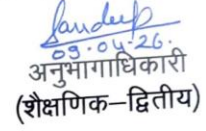 Sandeep
09.04.26.
अनुभागाधिकारी
(शैक्षणिक–द्वितीय)